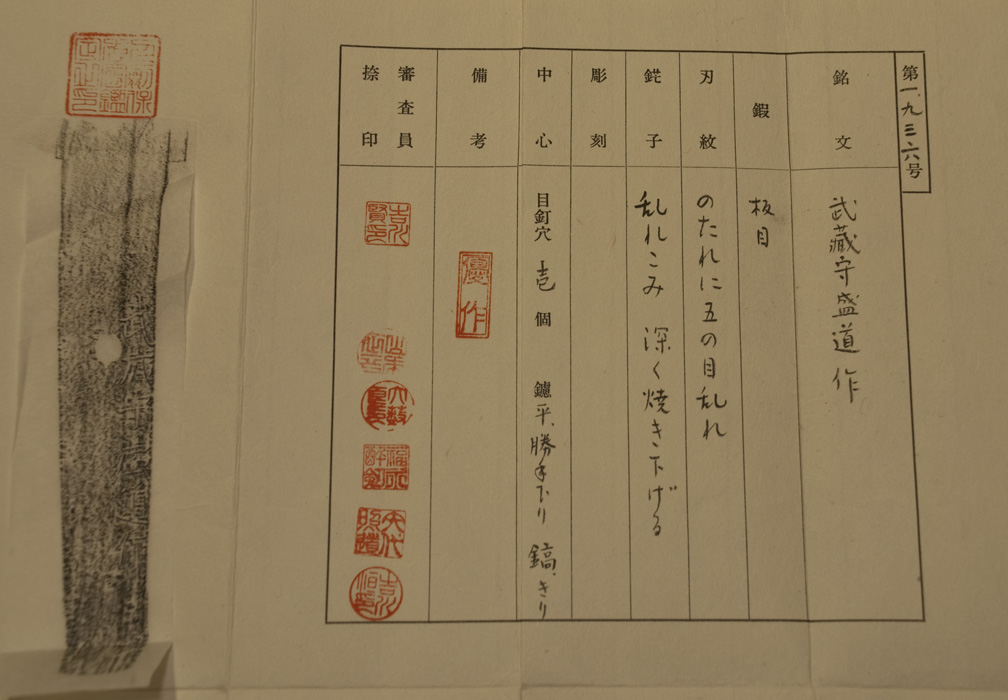 第一、九三六号
銘文
武蔵守盛道作
鍜
板目
刃紋
のたれに五の目乱れ
鋩子
乱れこみ 深く焼き下げる
彫刻
中心
目釘穴 壱 個 鑢 平、勝手下り 鎬、きり
備考
優作
審査員
捺印
武蔵守盛道作